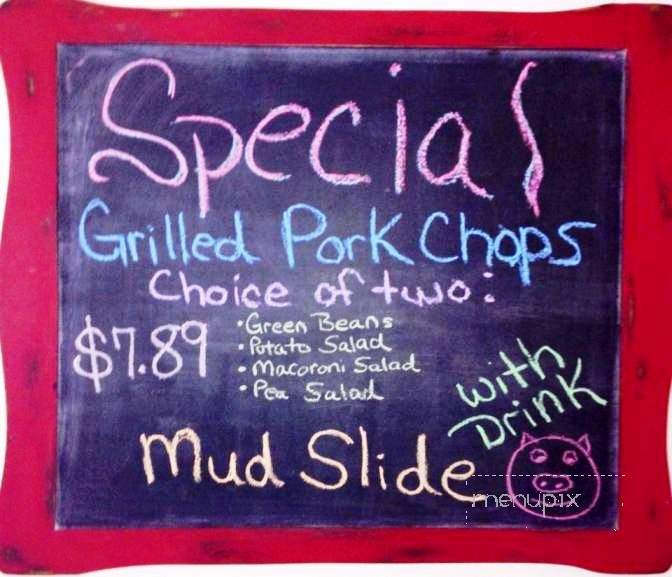 Special
Grilled Pork Chops
Choice of two:
$7.89
• Green Beans
• Potato Salad
• Macoroni Salad
• Pea Salad
with
Drink
Mud Slide
menupix